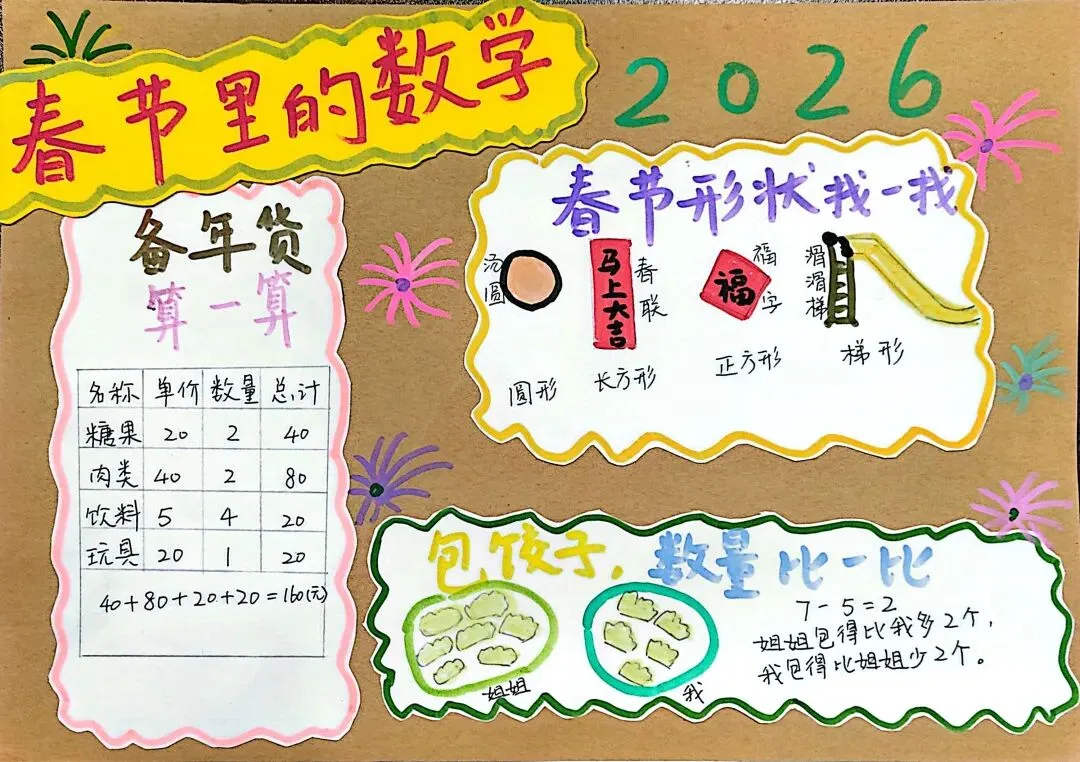 春节里的数学
2026
备年货
算一算
名称 单价 数量 总计
糖果 20 2 40
肉类 40 2 80
饮料 5 4 20
玩具 20 1 20
40+80+20+20=160(元)
春节形状找一找
汤圆
马上大吉
春联
福
福字
滑滑梯
圆形
长方形
正方形
梯形
包饺子,数量比一比
姐姐
我
7-5=2
姐姐包得比我多2个,
我包得比姐姐少2个。